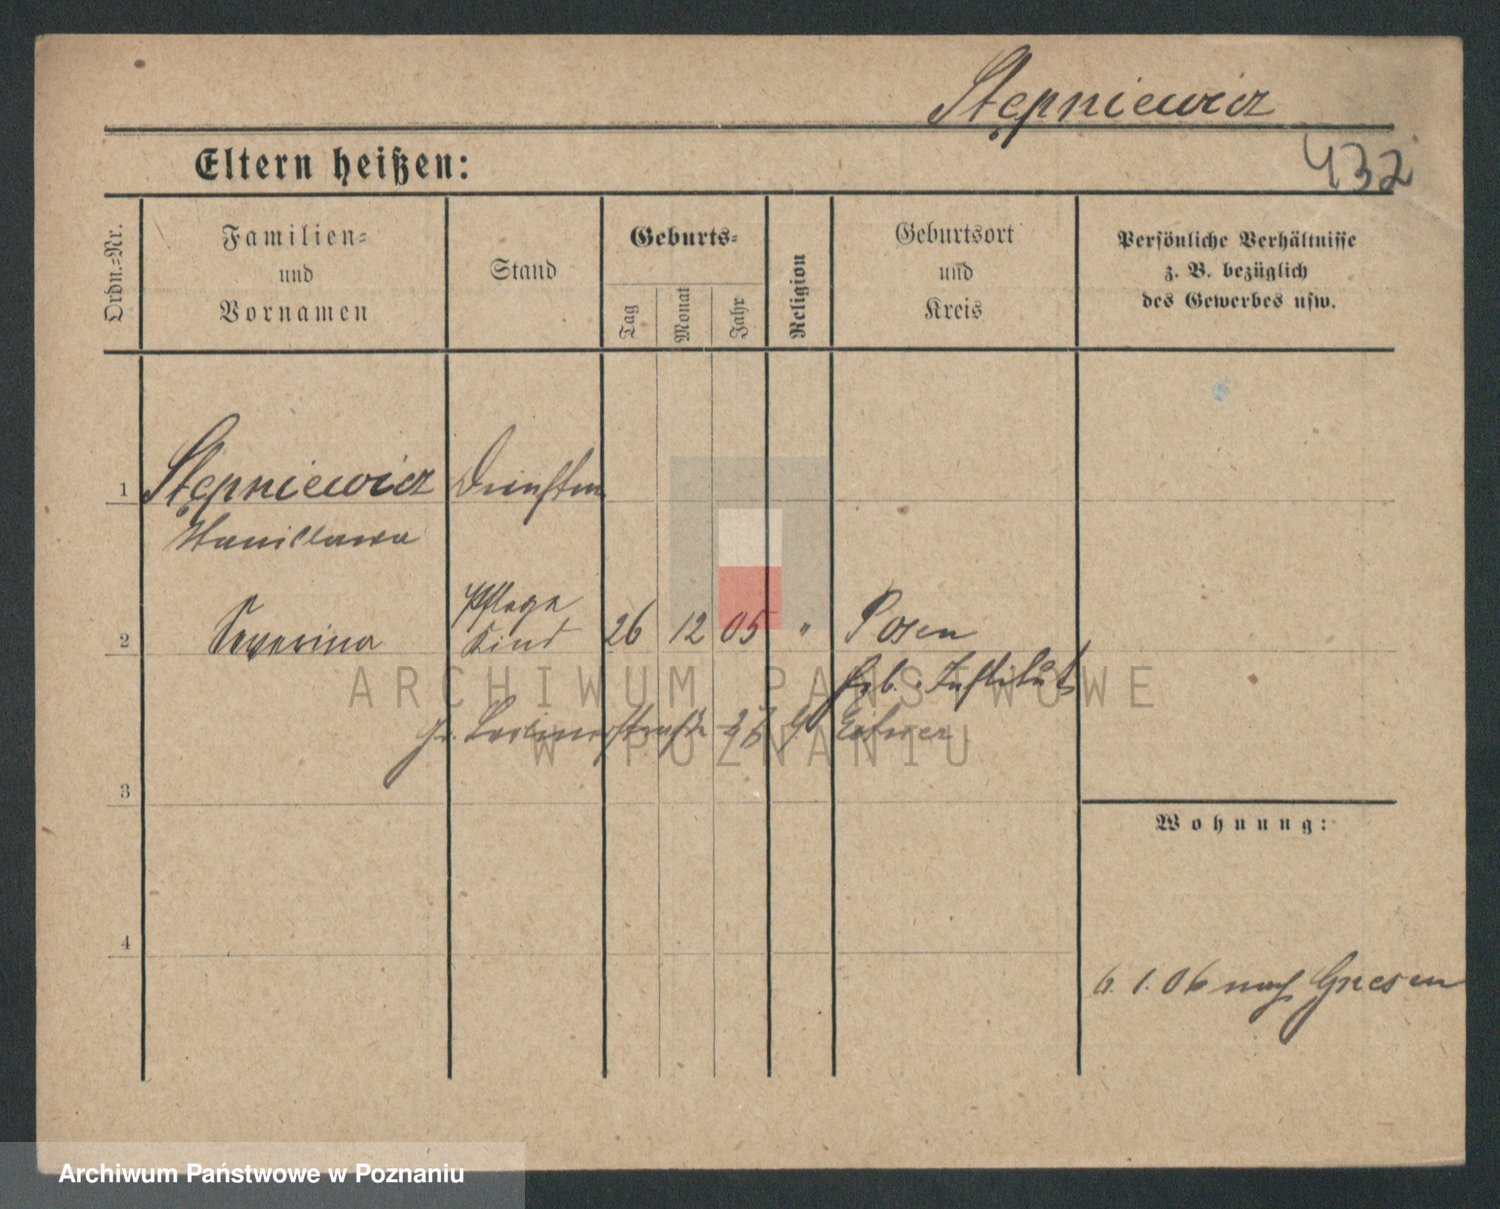 Stępniewicz
Eltern heißen:
432
Ordn.-Nr.
Familien-
und
Vornamen
Stand
Geburts-
Tag
Monat
Jahr
Religion
Geburtsort
und
Kreis
Persönliche Verhältnisse
z. B. bezüglich
des Gewerbes usw.
1 Stępniewicz
Stanislawa
2 Severina Pflege
Kind 26 12 05 " Posen
Institut
3
Wohnung:
4
6. 1. 06 nach Gnesen
ARCHIWUM PAŃSTWOWE
W POZNANIU
Archiwum Państwowe w Poznaniu